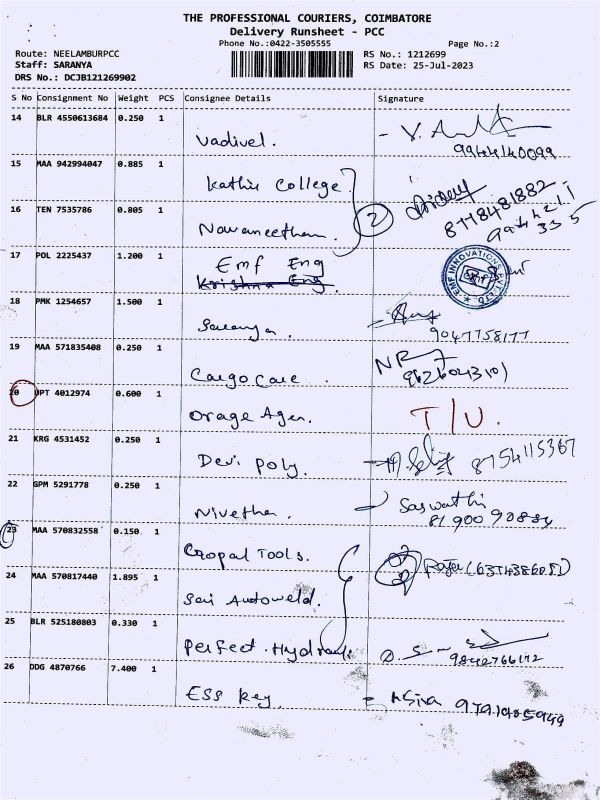 THE PROFESSIONAL COURIERS, COIMBATORE
Delivery Runsheet - PCC
Phone No.:0422-3505555
Page No.:2
Route: NEELAMBURPCC
RS No.: 1212699
Staff: SARANYA
RS Date: 25-Jul-2023
DRS No.: DCJB121269902
S No Consignment No Weight PCS Consignee Details Signature
14 BLR 4550613684 0.250 1
Vadivel.
9944140099
15 MAA 942994047 0.885 1
Kathir College
8778481882
16 TEN 7535786 0.805 1
2
Navaneethan.
17 POL 2225437 1.200 1
Emf Eng
Krishna Eng.
EMF INNOVATIONS PVT. LTD.
18 PMK 1254657 1.500 1
Saranya.
9047758177
19 MAA 571835408 0.250 1
Cargo Care
20 UPT 4012974 0.600 1
Orage Agen.
T/U.
21 KRG 4531452 0.250 1
Devi Poly.
8754115367
22 GPM 5291778 0.250 1
Nivetha.
Saswathi
81900 90884
23 MAA 570832558 0.150 1
Gopal Tools.
24 MAA 570817440 1.895 1
Sai Autoweld.
25 BLR 525180803 0.330 1
Perfect Hydrauli
9842766172
26 DDG 4870766 7.400 1
ESS Key